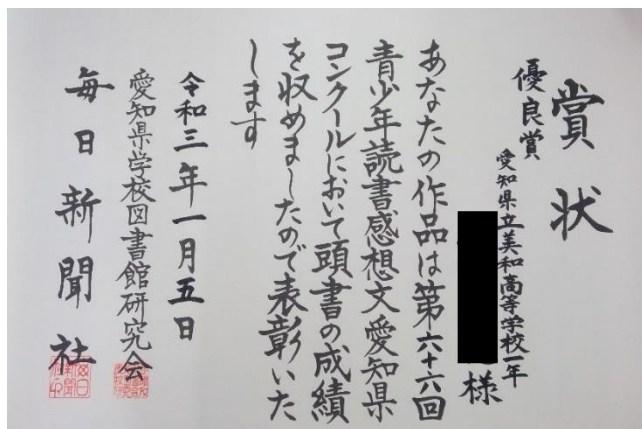 賞状
優良賞
愛知県立美和高等学校一年
様
あなたの作品は第六十六回
青少年読書感想文愛知県
コンクールにおいて頭書の成績
を収めましたので表彰いた
します
令和三年一月五日
愛知県学校図書館研究会
毎日新聞社